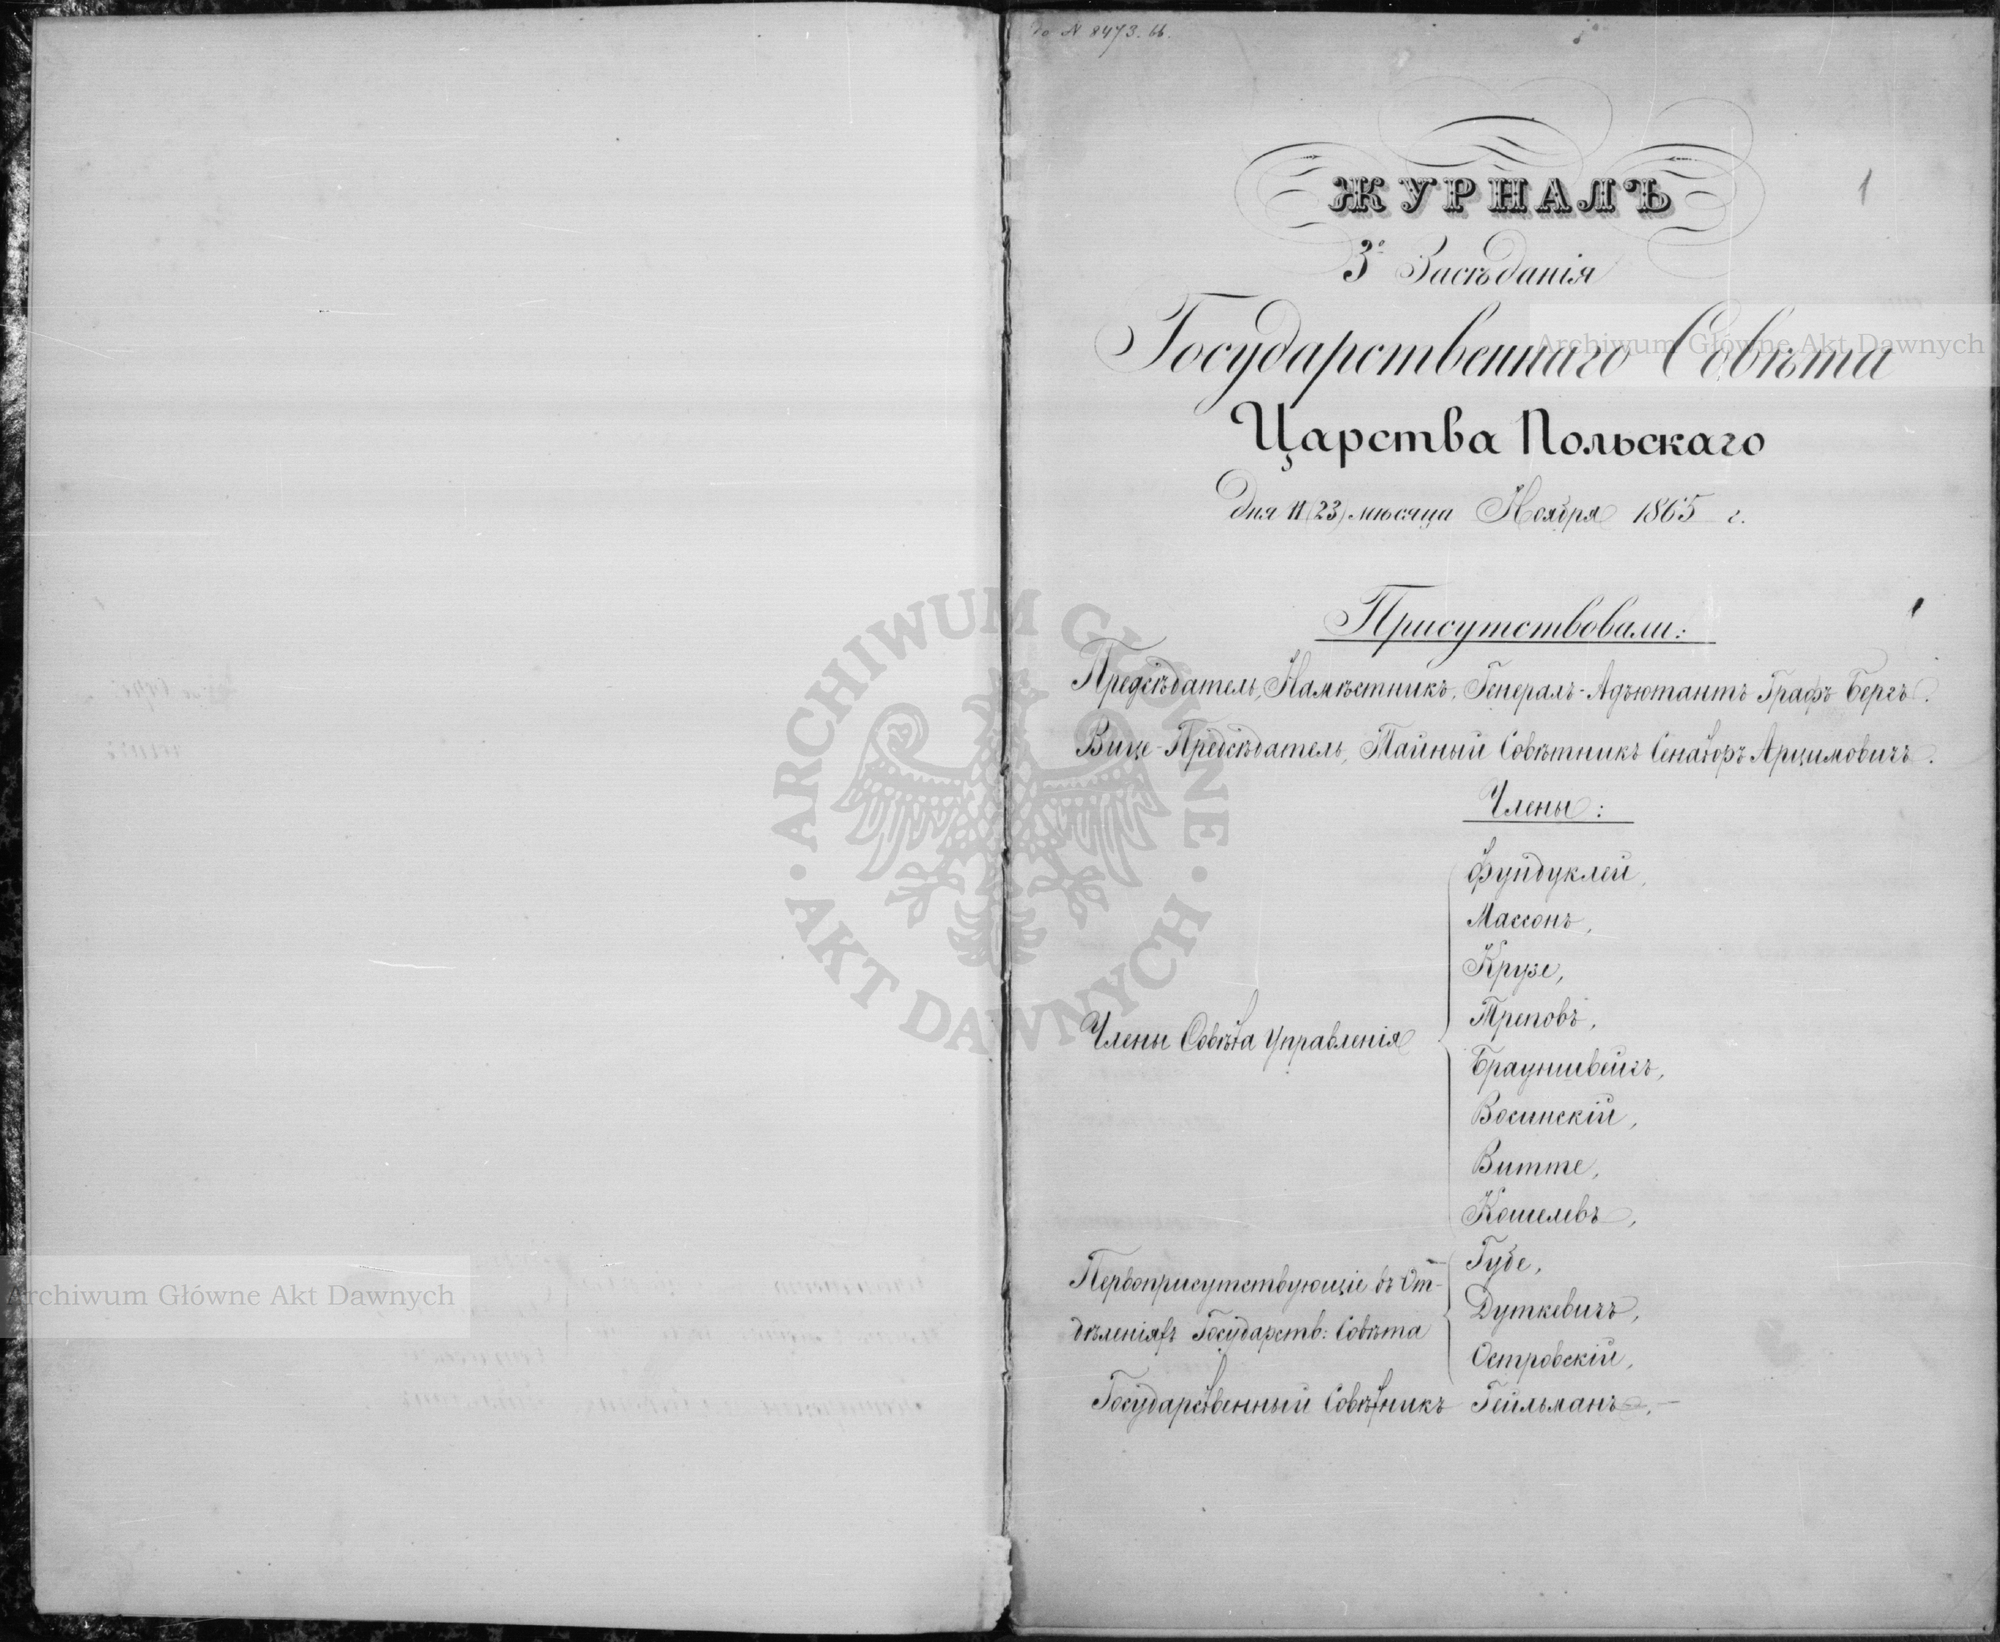 до N 8473. 66.
1
ЖУРНАЛЪ
3º Засѣданія
Государственнаго Совѣта
Царства Польскаго
Дня 11 (23) мѣсяца Ноября 1865 г.
Присутствовали:
Предсѣдатель, Намѣстникъ, Генералъ-Адъютантъ Графъ Бергъ.
Вице-Предсѣдатель, Тайный Совѣтникъ Сенаторъ Арцимовичъ.
Члены:
Члены Совѣта Управленія
Фундуклей,
Массонъ,
Крузе,
Треповъ,
Брауншвейгъ,
Восинскій,
Витте,
Кошелевъ,
Первоприсутствующіе въ От-
дѣленіяхъ Государств: Совѣта
Губе,
Дуткевичъ,
Островскій,
Государственный Совѣтникъ Гейльманъ.
Archiwum Główne Akt Dawnych
ARCHIWUM GŁÓWNE · AKT DAWNYCH ·
Archiwum Główne Akt Dawnych